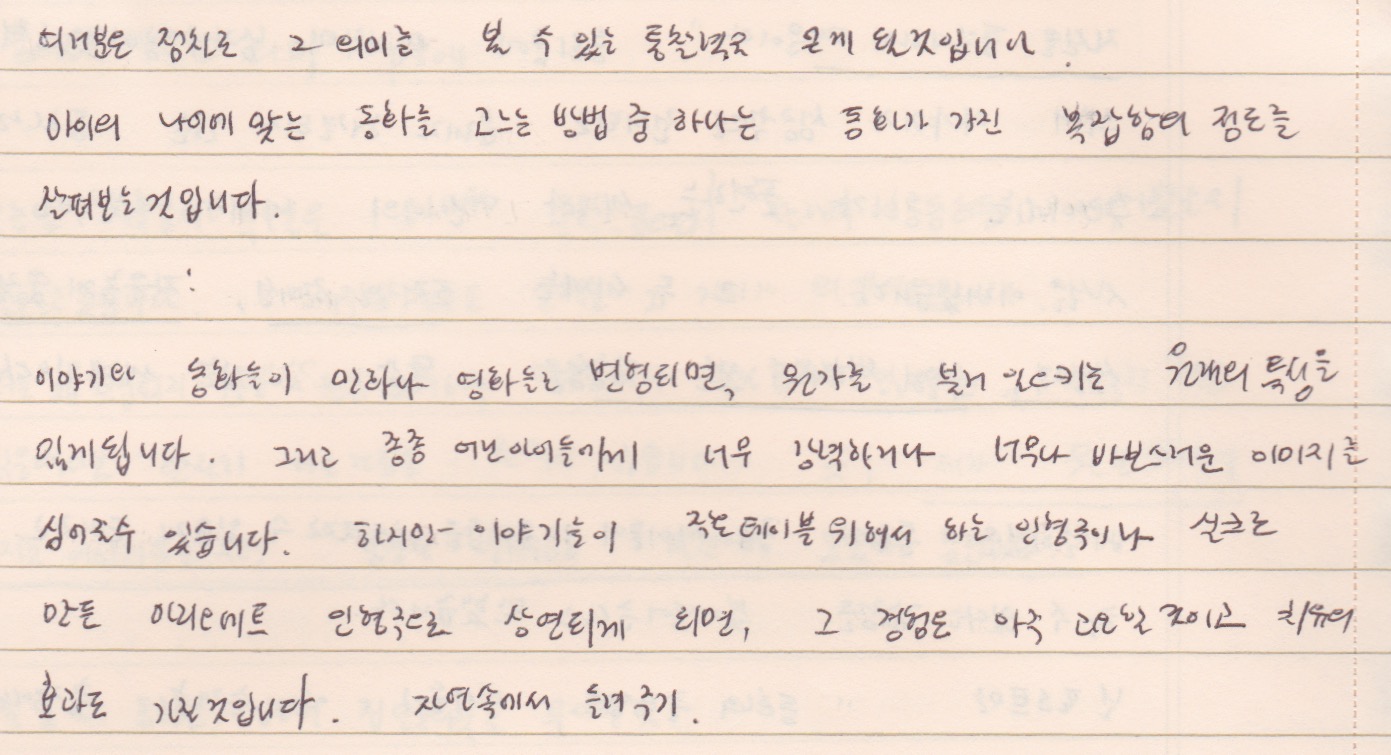 여러분은 점차로 그 의미를 볼 수 있는 통찰력도 얻게 될 것입니다.
아이의 나이에 맞는 동화를 고르는 방법 중 하나는 동화가 가진 복잡함의 정도를
살펴보는 것입니다.
:
이야기와 동화들이 만화나 영화로 변형되면, 뭔가를 불러 일으키는 원래의 특성을
잃게 됩니다. 그리고 종종 어린아이들에게 너무 강력하거나 너무나 바보스러운 이미지를
심어줄 수 있습니다. 하지만 이야기들이 작은 테이블 위에서 하는 인형극이나 실크로
만든 마리오네트 인형극으로 상연되게 되면, 그 경험은 아주 고요할 것이고 치유의
효과도 가질 것입니다. 자연속에서 들려주기.